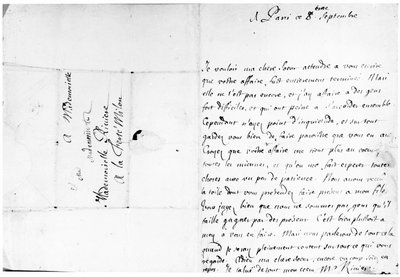 A Paris ce 8 Septembre
Je voulois ma chere Sœur attendre a vous escrire
que vostre affaire fust entierement terminée. Mais
elle ne l'est pas encore, et j'ay affaire a des gens
fort difficiles, et qui ont peine a s'accorder ensemble
Cependant n'ayez point d'inquietude, et sur tout
gardez vous bien de faire paroistre que vous en
Croyez que vostre affaire me tient plus au cœur
toutes les miennes, et qu'on me fait esperer toutes
choses avec un peu de patience. Nous avons receu
la toile dont vous pretendez faire present a mon fils.
Vous jugez bien que nous ne sommes pas gens qu'il
faille gagner par des presens. C'est bien plustost a
moy a vous en faire. Mais nous parlerons de tout cela
quand je seray pleinement content sur tout ce qui vous
regarde. Adieu ma chere Sœur, encore un coup soiez en
repos. Je salue de tout mon cœur Mr Riviere
A Mademoiselle
Mademoiselle Riviere
A la Ferté Milon